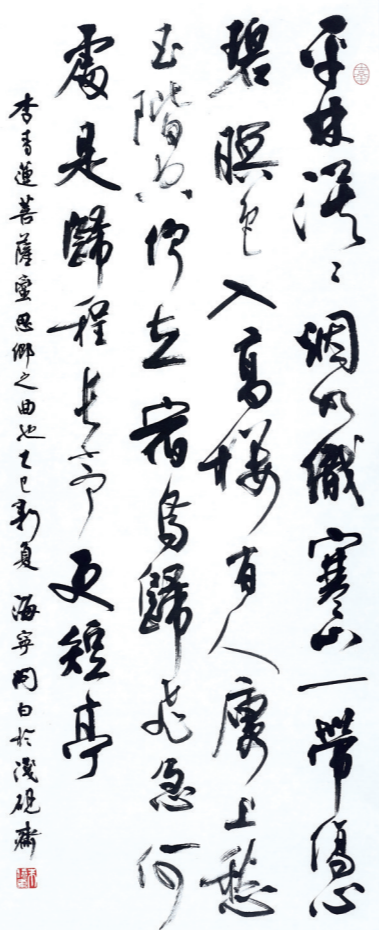 平林漠〻烟如織寒山一帶傷心
碧暝色入高樓有人樓上愁
玉階空佇立宿鳥歸飛急何
處是歸程長亭更短亭
李青蓮菩薩蠻思鄉之曲也乙巳新夏 海寧白於淺硯齋